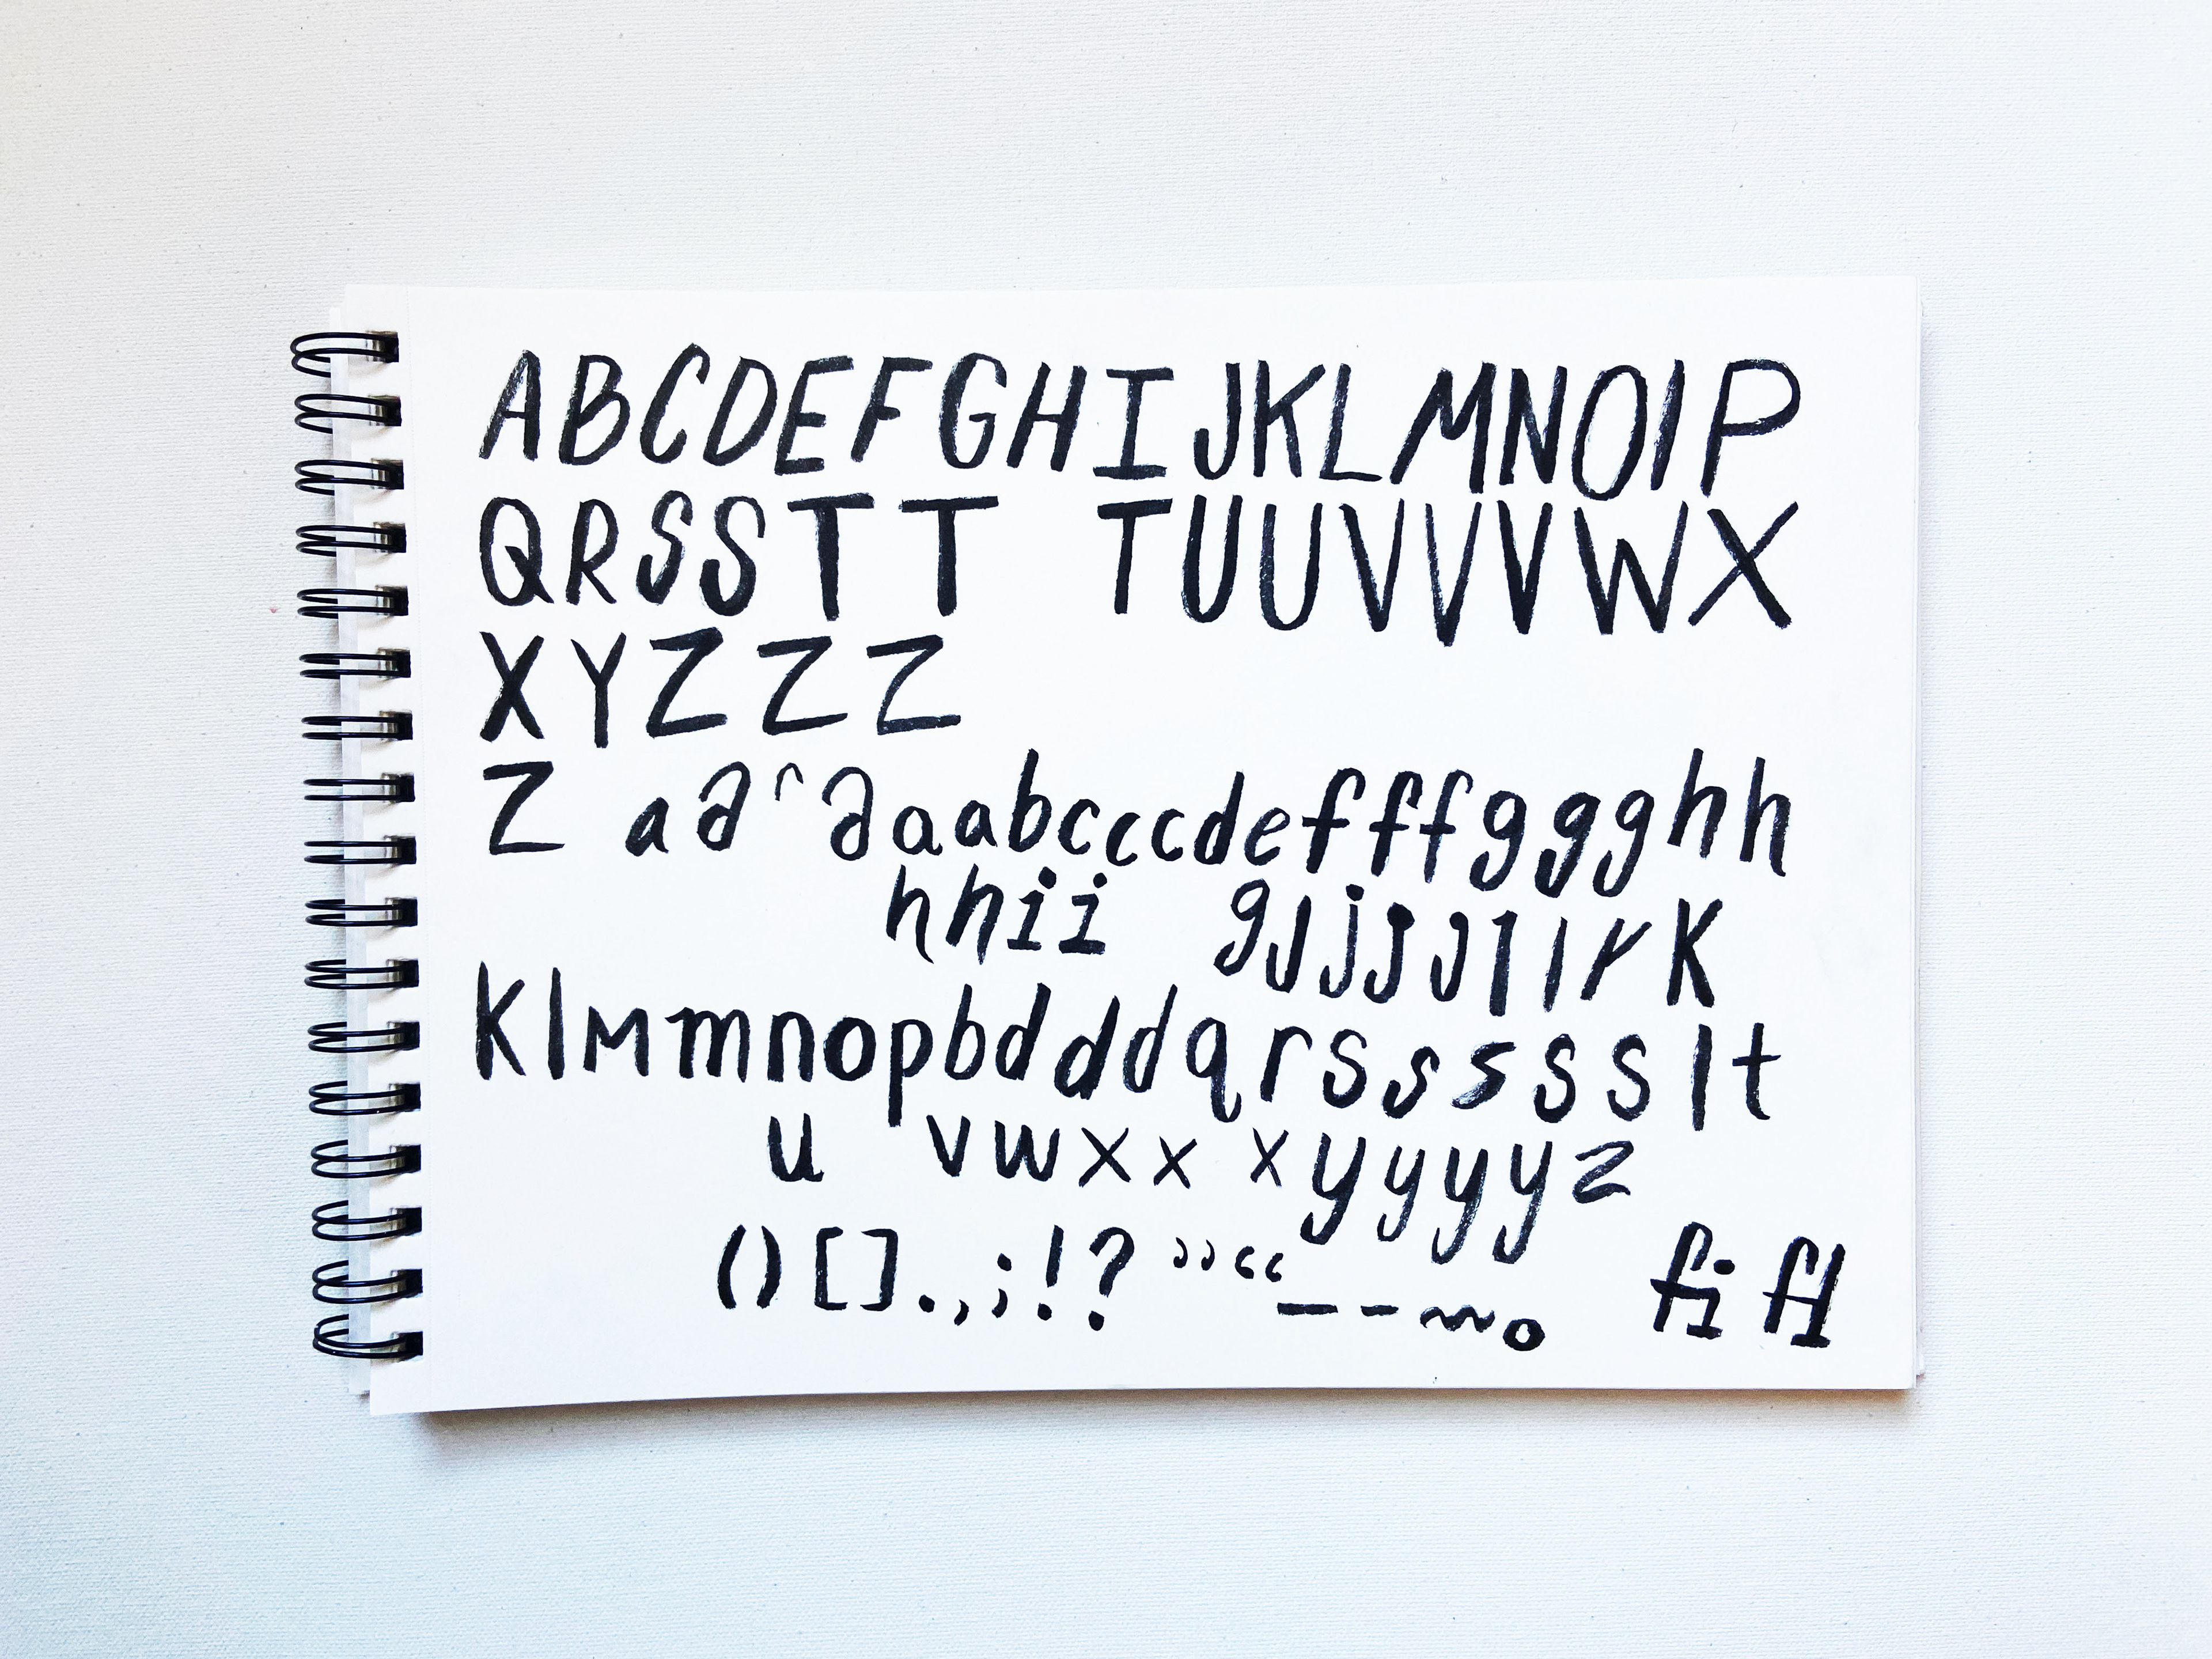 ABCDEFGHIJKLMNOIP
QRSSTT TUUVVVWX
XYZZZ
Z a∂^∂aabcccdefffggghh
hhii gJjJJ1lrK
Klmmnopbdddqrssssslt
u vwxx xyyyyz
()[].,;!? ’’‘‘—-~o fi fl